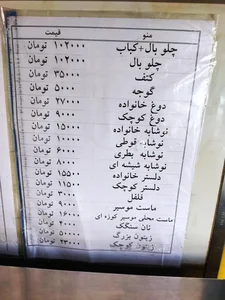 منو قیمت
چلو بال+کباب ۱۰۲۰۰۰ تومان
چلو بال ۱۰۲۰۰۰ تومان
کتف ۳۵۰۰۰ تومان
گوجه ۵۰۰۰ تومان
دوغ خانواده ۲۷۰۰۰ تومان
دوغ کوچک ۹۰۰۰ تومان
نوشابه خانواده ۱۵۰۰۰ تومان
نوشابه قوطی ۱۰۰۰۰ تومان
نوشابه بطری ۶۰۰۰ تومان
نوشابه شیشه ای ۸۰۰۰ تومان
دلستر خانواده ۱۵۵۰۰ تومان
دلستر کوچک ۱۱۵۰۰ تومان
فلفل ۳۰۰۰ تومان
ماست موسیر ۹۰۰۰ تومان
ماست محلی موسیر کوزه ای ۱۶۰۰۰ تومان
نان سنگک ۴۰۰۰ تومان
زیتون بزرگ ۵۰۰۰۰ تومان
زیتون کوچک ۲۳۰۰۰ تومان